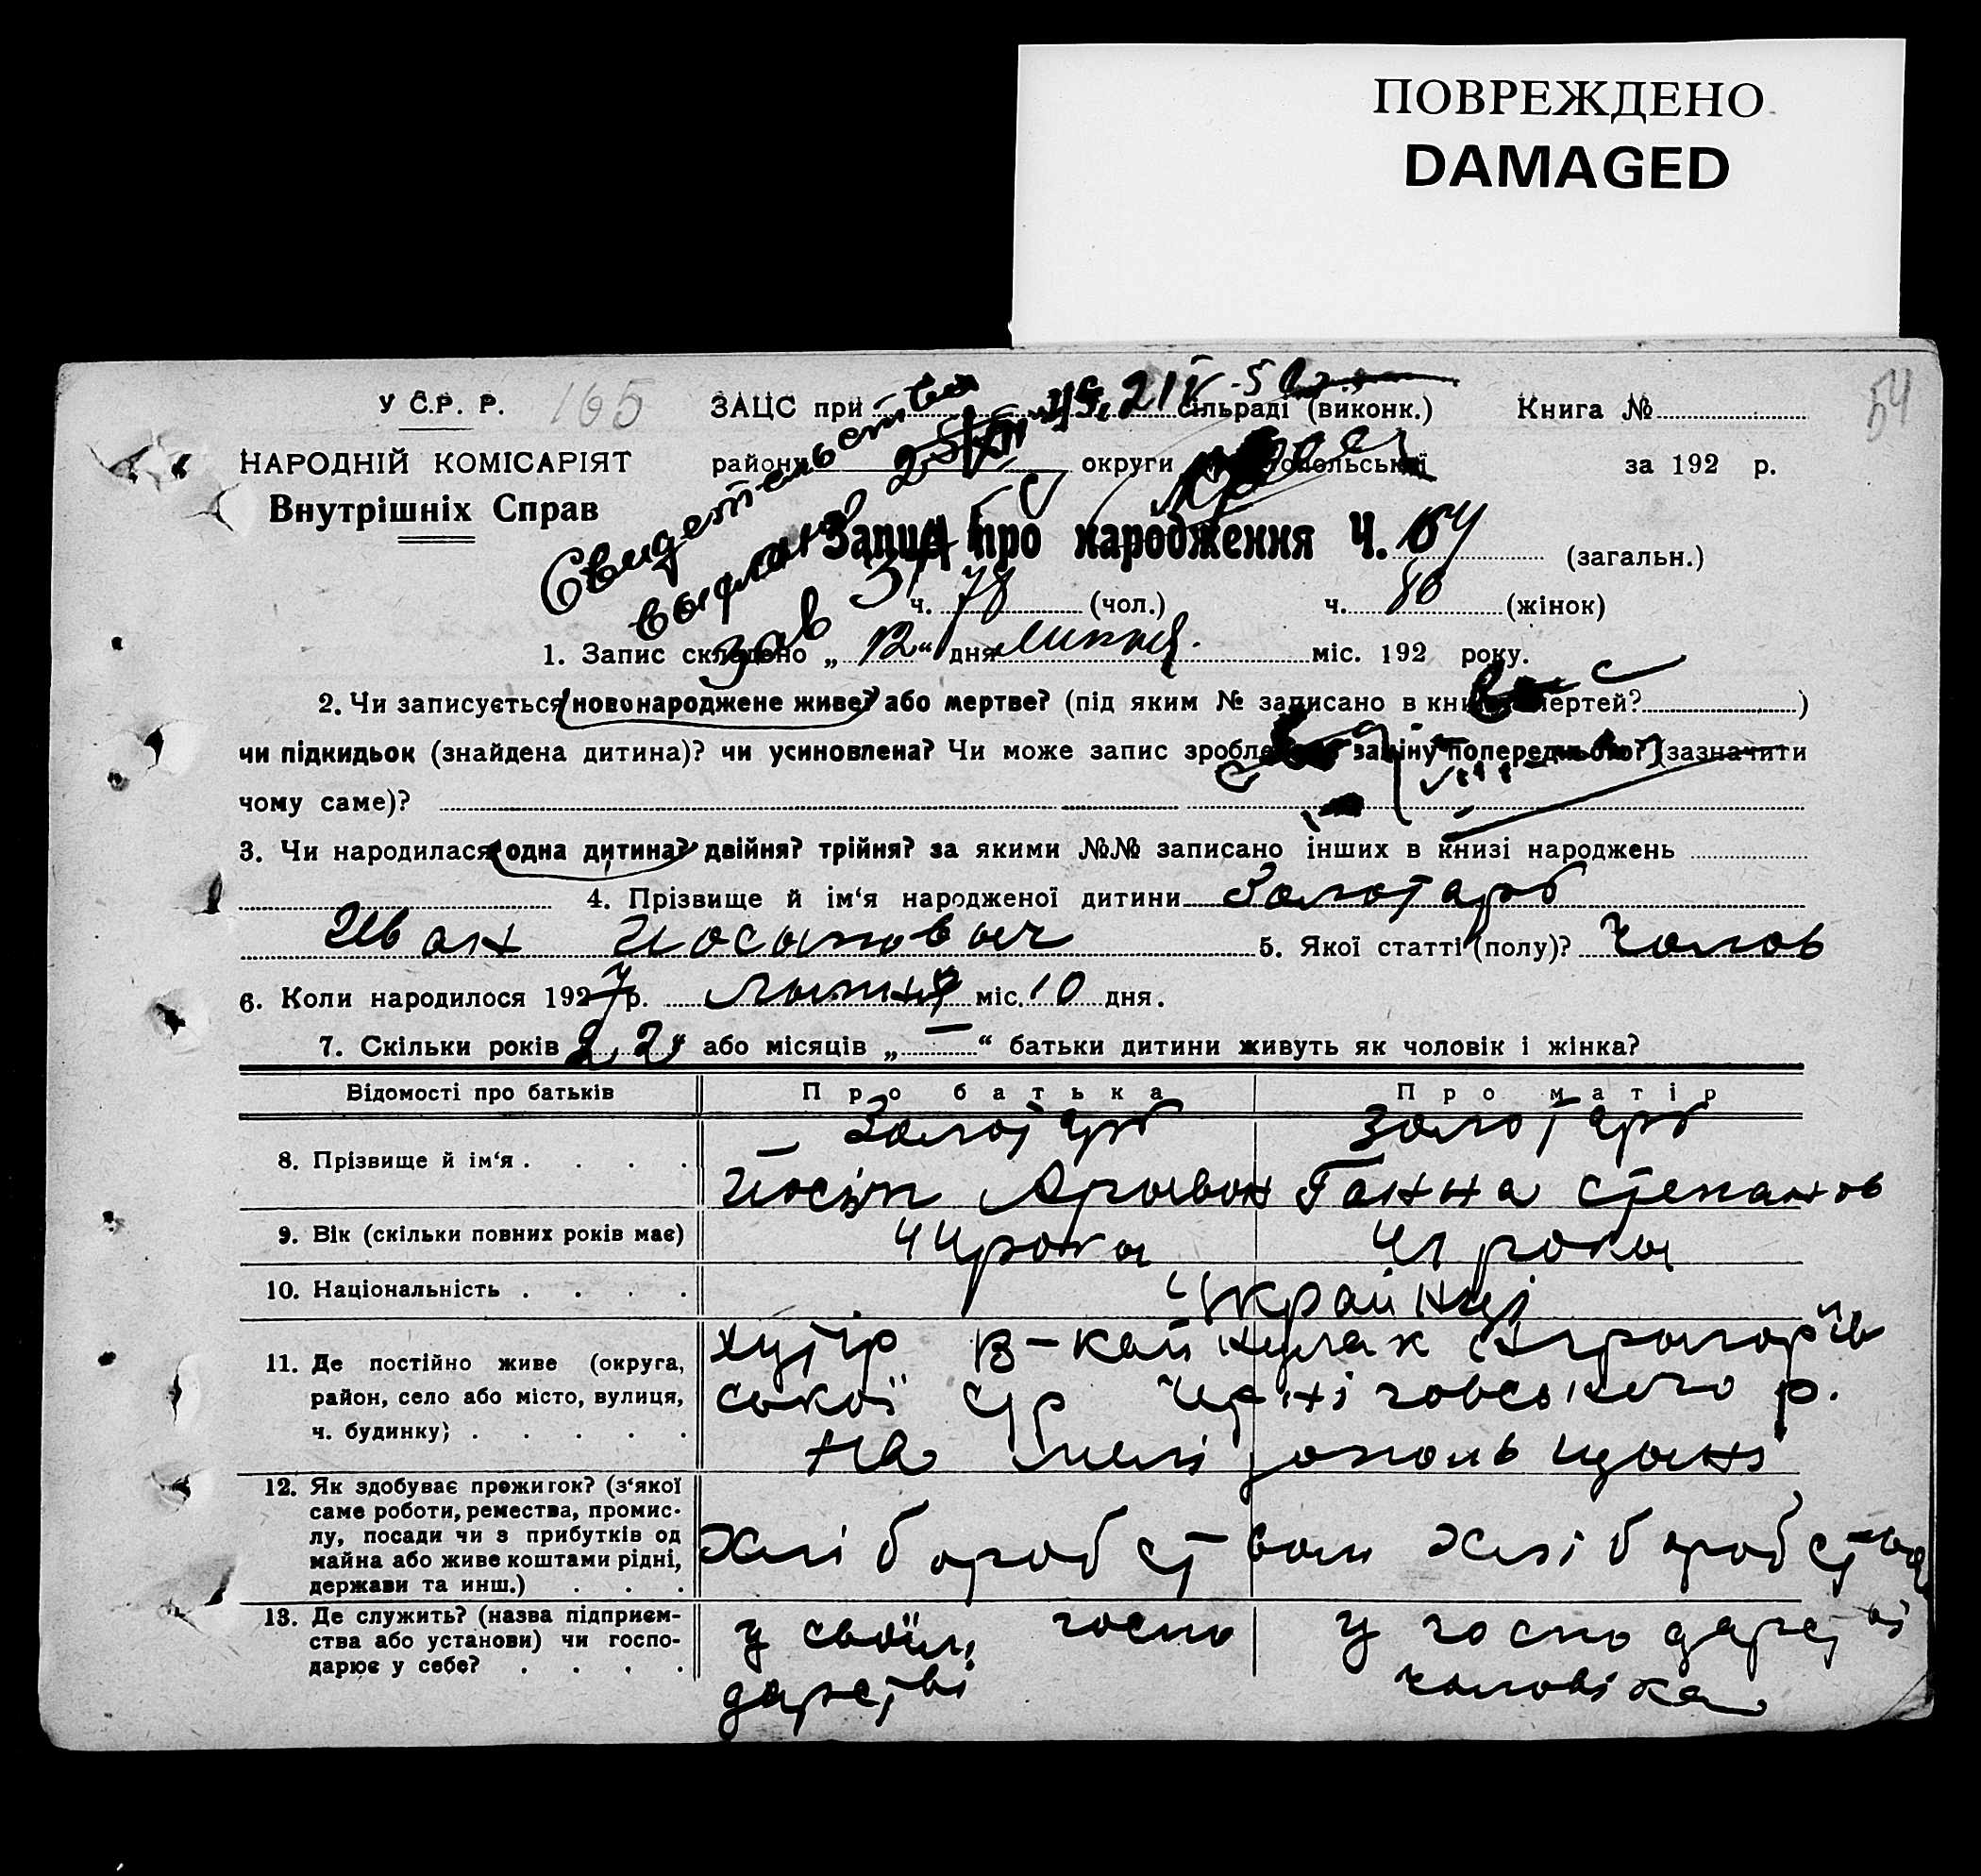 ПОВРЕЖДЕНО
DAMAGED
У С.Р. Р. 165 ЗАЦС при сільраді (виконк.) Книга № 54
НАРОДНІЙ КОМІСАРІЯТ району округи за 192 р.
Внутрішніх Справ
Свидетельство
Запис про народження Ч. 154 (загальн.)
ч. 78 (чол.) ч. (жінок)
1. Запис складено „ 12 “ дня липня міс. 192 року.
2. Чи записується новонароджене живе? або мертве? (під яким № записано в книзі смертей? )
чи підкидьок (знайдена дитина)? чи усиновлена? Чи може запис зроблено на заміну попереднього? (зазначити
чому саме)?
3. Чи народилася одна дитина? двійня? трійня? за якими №№ записано інших в книзі народжень
4. Прізвище й ім‘я народженої дитини Золотарь
Иван Иосипович 5. Якої статті (полу)? Чолов
6. Коли народилося 1927 р. липня міс. 10 дня.
7. Скільки років або місяців „ — “ батьки дитини живуть як чоловік і жінка?
Відомості про батьків Про батька Про матір
8. Прізвище й ім‘я . . . . Золотарь Золотарь
Йосип Ганна Степанов
9. Вік (скільки повних років має) 44 роки 41 роки
10. Національність . . . . Українці
11. Де постійно живе (округа, хутір
район, село або місто, вулиця, ської с/р Черніговського р.
ч. будинку; . . . . . на Мелітопольщині
12. Як здобуває прожиток? (з‘якої
саме роботи, ремества, промис-
лу, посади чи з прибутків од
майна або живе коштами рідні, хліборобством хліборобством
держави та инш.) . . .
13. Де служить? (назва підприєм- у своїм госпо у господарстві
ства або установи) чи госпо-
дарює у себе? . . . . дарстві чоловіка